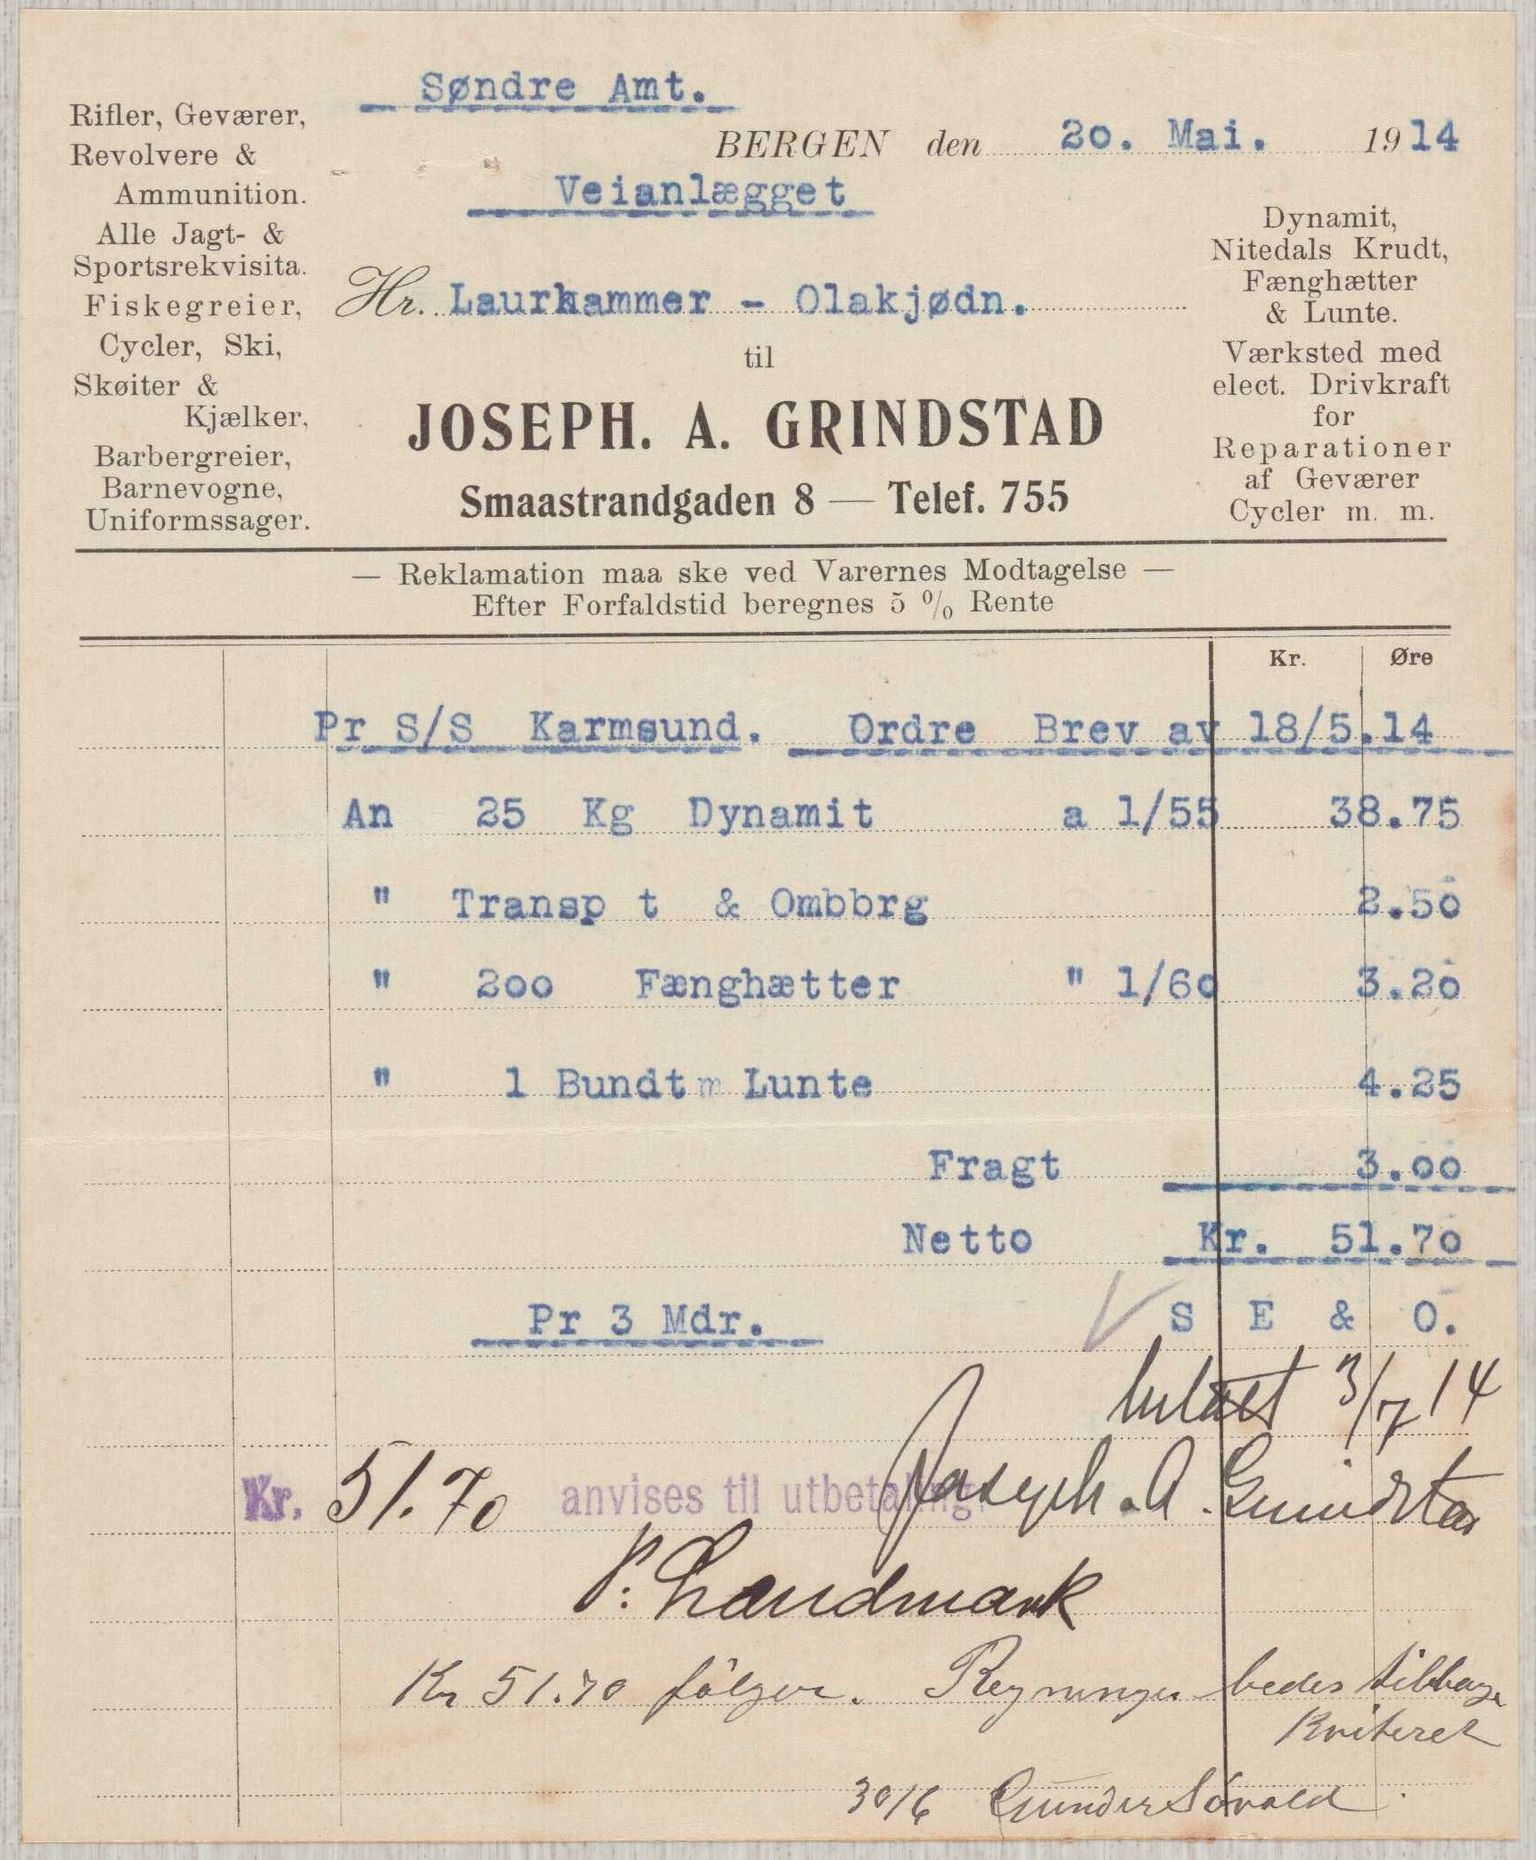 Søndre Amt.
Rifler, Geværer,
Revolvere &
Ammunition.
Alle Jagt- &
Sportsrekvisita.
Fiskegreier,
Cycler, Ski,
Skøiter &
Kjælker,
Barbergreier,
Barnevogne,
Uniformssager.
BERGEN den 20. Mai. 1914
Veianlægget
Hr. Laurhammer - Olakjødn.
til
JOSEPH. A. GRINDSTAD
Smaastrandgaden 8 — Telef. 755
Dynamit,
Nitedals Krudt,
Fænghætter
& Lunte.
Værksted med
elect. Drivkraft
for
Reparationer
af Geværer
Cycler m. m.
— Reklamation maa ske ved Varernes Modtagelse —
Efter Forfaldstid beregnes 5 % Rente
Kr. Øre
Pr S/S Karmsund. Ordre Brev av 18/5.14
An 25 Kg Dynamit a 1/55 38.75
" Transp t & Ombbrg 2.50
" 200 Fænghætter " 1/60 3.20
" 1 Bundt m Lunte 4.25
Fragt 3.00
Netto Kr. 51.70
Pr 3 Mdr. S E & O.
betalt 3/7 14
Kr. 51.70 anvises til utbetaling. Joseph. A. Grindstad
P. Landmark
Kr 51.70 følger. Regninger bedes tilbage
kviteret
30/6 Gunder